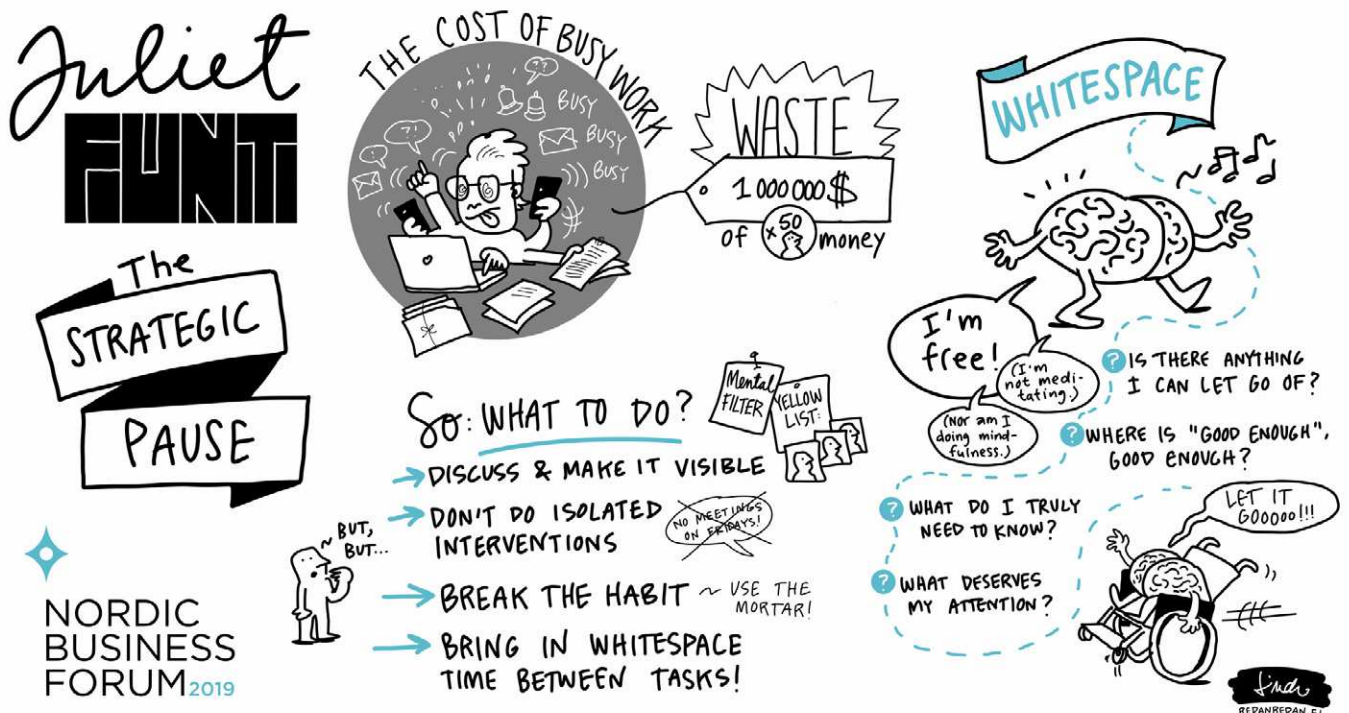 Juliet
FUNT
The
STRATEGIC
PAUSE
NORDIC
BUSINESS
FORUM 2019
THE COST OF BUSY WORK
??
?!
BUSY
BUSY
BUSY
WASTE
1 000 000 $
OF ×50 money
So: WHAT TO DO?
Mental
FILTER
YELLOW
LIST:
→ DISCUSS & MAKE IT VISIBLE
→ DON'T DO ISOLATED
INTERVENTIONS
NO MEETINGS
ON FRIDAYS!
~ BUT,
BUT...
→ BREAK THE HABIT ~ USE THE
MORTAR!
→ BRING IN WHITESPACE
TIME BETWEEN TASKS!
WHITESPACE
I'm
free!
(I'm
not medi-
tating.)
(Nor am I
doing mind-
fulness.)
? IS THERE ANYTHING
I CAN LET GO OF?
? WHERE IS "GOOD ENOUGH",
GOOD ENOUGH?
? WHAT DO I TRULY
NEED TO KNOW?
? WHAT DESERVES
MY ATTENTION?
LET IT
GOOOOO!!!
REDANREDAN.FI